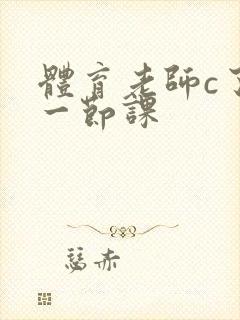 體育老師c了
一節課
慈赤